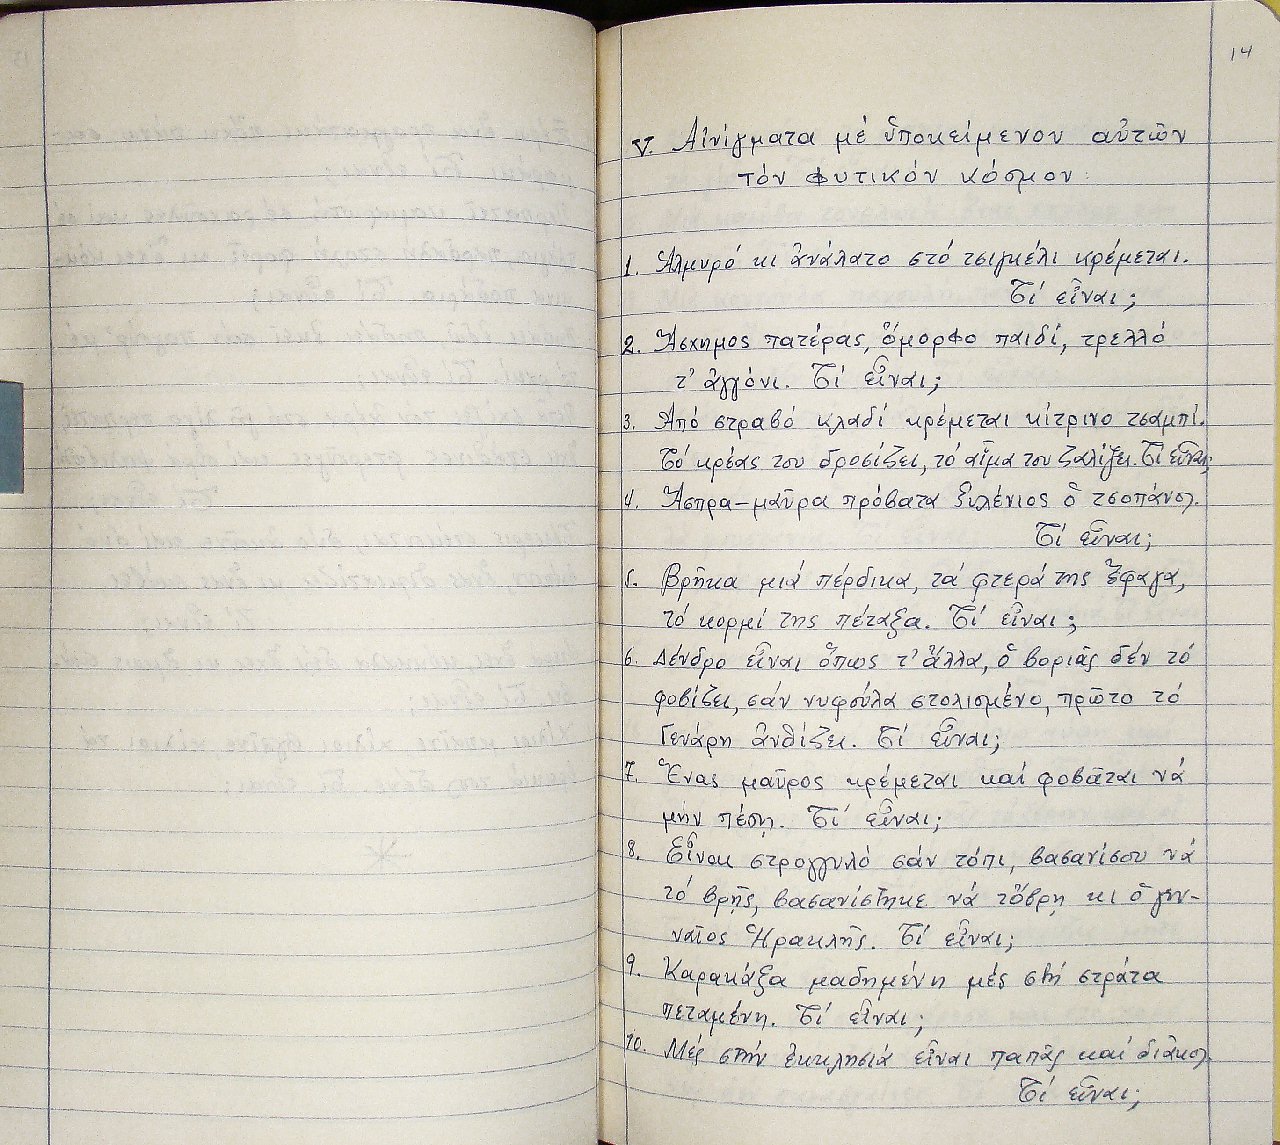 14
V. Αἰνίγματα μέ ὑποκείμενον αὐτῶν
τόν φυτικόν κόσμον:
1. Ἁλμυρό κι ἀνάλατο στό τσιγκέλι κρέμεται.
Τί εἶναι;
2. Ἄσχημος πατέρας, ὄμορφο παιδί, τρελλό
τ' ἀγγόνι. Τί εἶναι;
3. Ἀπό στραβό κλαδί κρέμεται κίτρινο τσαμπί.
Τό κρέας του δροσίζει, τό αἷμα του ζαλίζει. Τί εἶναι;
4. Ἄσπρα-μαῦρα πρόβατα ξυλένιος ὁ τσοπάνος.
Τί εἶναι;
5. Βρῆκα μιά πέρδικα, τά φτερά της ἔφαγα,
τό κορμί της πέταξα. Τί εἶναι;
6. Δένδρο εἶναι ὅπως τ' ἄλλα, ὁ βοριᾶς δέν τό
φοβίζει, σάν νυφούλα στολισμένο, πρῶτο τό
Γενάρη ἀνθίζει. Τί εἶναι;
7. Ἕνας μαῦρος κρέμεται καί φοβᾶται νά
μήν πέσῃ. Τί εἶναι;
8. Εἶναι στρογγυλό σάν τόπι, βασανίσου νά
τό βρῇς, βασανίστηκε νά τὄβρῃ κι ὁ γεν-
ναῖος Ἡρακλῆς. Τί εἶναι;
9. Καρακάξα μαδημένη μές στή στράτα
πεταμένη. Τί εἶναι;
10. Μές στήν ἐκκλησιά εἶναι παπᾶς καί διάκος.
Τί εἶναι;